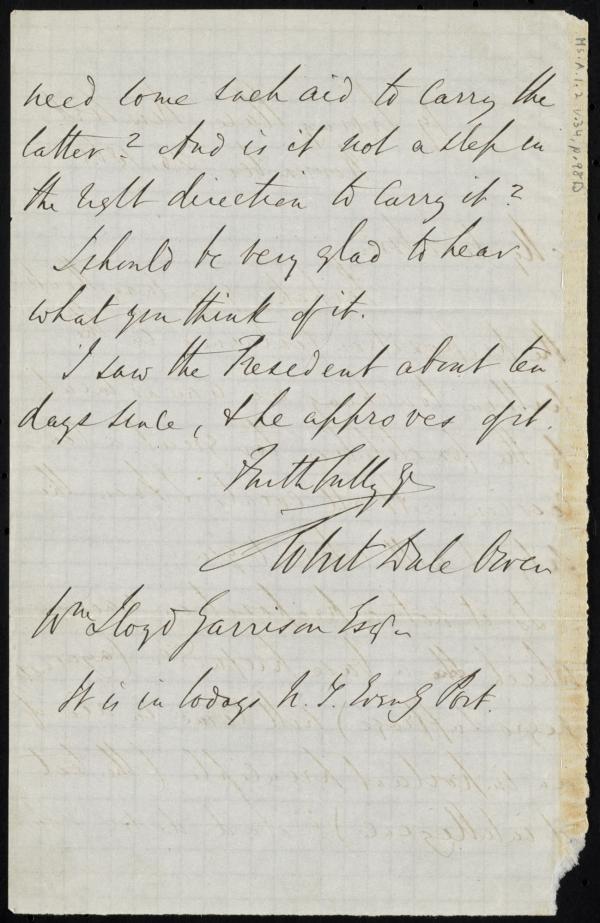 need some such aid to carry the
latter? And is it not a step in
the right direction to carry it?
I should be very glad to hear
what you think of it.
I saw the President about ten
days since, & he approves of it.
Faithfully yrs
Robert Dale Owen
Wm Lloyd Garrison Esqr
It is in todays N. Y. Eveng Post.
Ms. A. 1. 2 v. 34 p. 98B